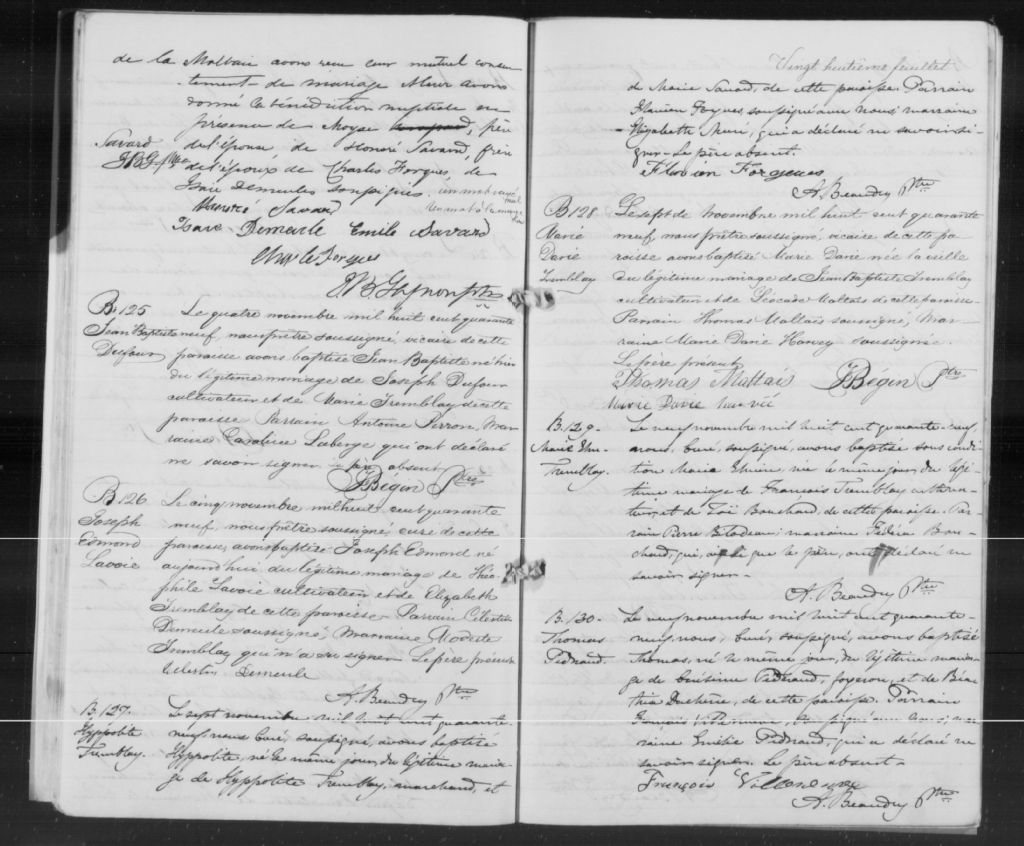 de la Malbaie avons reçu leur mutuel consen-
-tement de mariage & leur avons
donné la bénédiction nuptiale en
présence de Moyse frère
Savard
de l'épouse de Honoré Savard, frère
JBG ptre
de l'époux de Charles Forgues, de
Isaïe Demeules soussignés. un mot rayé
nul
Honoré Savard
un mot à la marge
bon
Isaie Demeule Emile Savard
Charles Forgues
JB Gagnon ptre
B. 125
Jean Baptiste
Dufour
Le quatre novembre mil huit cent quarante
neuf, nous prêtre soussigné, vicaire de cette
paroisse avons baptisé Jean Baptiste né hier
du légitime mariage de Joseph Dufour
cultivateur et de Marie Tremblay de cette
paroisse Parrain Antoine Perron, Mar-
raine Caroline Laberge qui ont déclaré
ne savoir signer le père absent
J Bégin Ptre
B 126
Joseph
Edmond
Lavoie
Le cinq novembre mil huit cent quarante
neuf, nous prêtre soussigné, curé de cette
paroisse, avons baptisé Joseph Edmond né
aujourd'hui du légitime mariage de Théo-
phile Lavoie cultivateur et de Elizabeth
Tremblay de cette paroisse. Parrain Célestin
Demeule soussigné Marraine Modeste
Tremblay qui n'a su signer Le père présent
Celestin Demeule
A. Beaudry Ptre
B. 127.
Hyppolite
Tremblay.
Le sept novembre mil huit cent quarante
neuf nous curé soussigné, avons baptisé
Hyppolite, né le même jour, du légitime maria-
ge de Hyppolite Tremblay, marchand, et
Vingt huitième feuillet
de Marie Savard, de cette paroisse Parrain
Florien Forgues soussigné avec nous marraine
Elizabette Mure, qui a déclaré ne savoir si-
gner - Le père absent.
Florien Forgues
A. Beaudry Ptre
B 128
Marie
Darie
Tremblay
Le sept de novembre mil huit cent quarante
neuf, nous prêtre soussigné, vicaire de cette pa-
roisse avons baptisé Marie Darie née la veille
du légitime mariage de Jean Baptiste Tremblay
cultivateur et de Léocade Maltais de cette paroisse
Parrain Thomas Maltais soussigné, Mar-
raine Marie Darie Harvey soussignée.
Le père présent
Thomas Maltais J Bégin Ptre
Marie Darie
B. 129.
Marie Elm-
Tremblay.
Le neuf novembre mil huit cent quarante-neuf,
nous, curé, soussigné, avons baptisé sous condi-
tion Marie née le même jour, du légi-
time mariage de François Tremblay cultiva-
teur, et de Zoé Bouchard, de cette paroisse. Par-
rain Pierre Bilodeau; marraine Bou-
chard, qui, ainsi que le père, ont déclaré ne
savoir signer -
A. Beaudry Ptre
B. 130.
Thomas
Pednaud.
Le neuf novembre mil huit cent quarante-
neuf nous, curé, soussigné, avons baptisé
Thomas, né le même jour, du légitime maria-
ge de Pednaud, forgeron, et de
Duchêne, de cette paroisse. Parrain
François Villeneuve, soussigné avec nous; mar-
raine Emilie Pednaud, qui a déclaré ne
savoir signer. Le père absent -
François Villeneuve
A. Beaudry Ptre